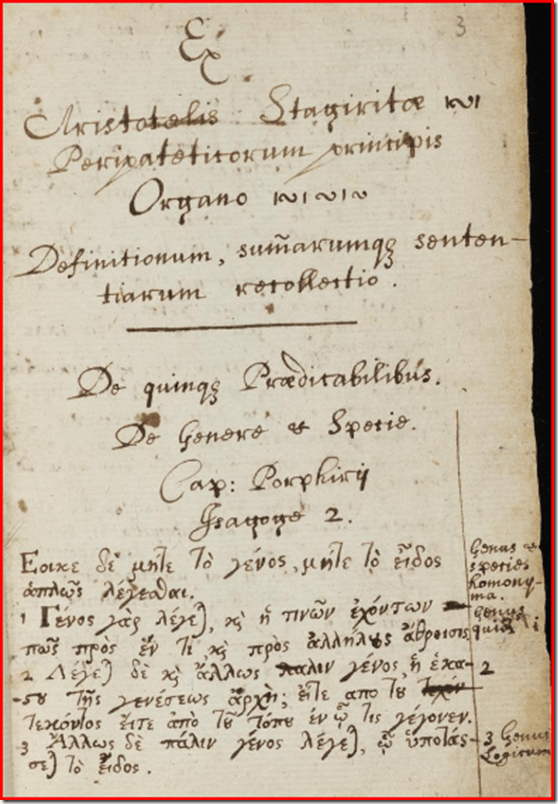 3
Ex
Aristotelis Stagiritæ
Peripateticorum principis
Organo
Definitionum, sum̄arumqꝫ senten-
tiarum recollectio.
De quinqꝫ Prædicabilibus.
De Genere & Specie.
Cap: Porphirij
Isagoge 2.
Εοικε δὲ μήτε τὸ γένος, μήτε τὸ εἶδος
ἁπλῶς λέγεσθαι.
1 Γένος γὰρ λέγε), κ̀ ἡ τινῶν ἐχόντων
πως πρὸς ἕν τι, κ̀ πρὸς ἀλλήλȣς ἄθροισις
2 Λέγε) δὲ κ̀ ἄλλως πάλιν γένος ἡ ἑκά-
ϛȣ τῆς γενέσεως ἀρχὴ; εἴτε απο τȣ͂
τεκόντος εἴτε ἀπὸ τȣ͂ τόπȣ ἐν ᾧ τις γέγονεν.
3 Ἄλλως δὲ πάλιν γένος λέγε), ᾧ ὑποτάσ-
σε) τὸ εἶδος.
Genus &
species
homony-
ma.
Genus
quid 1
2
3 Genus
Logicum